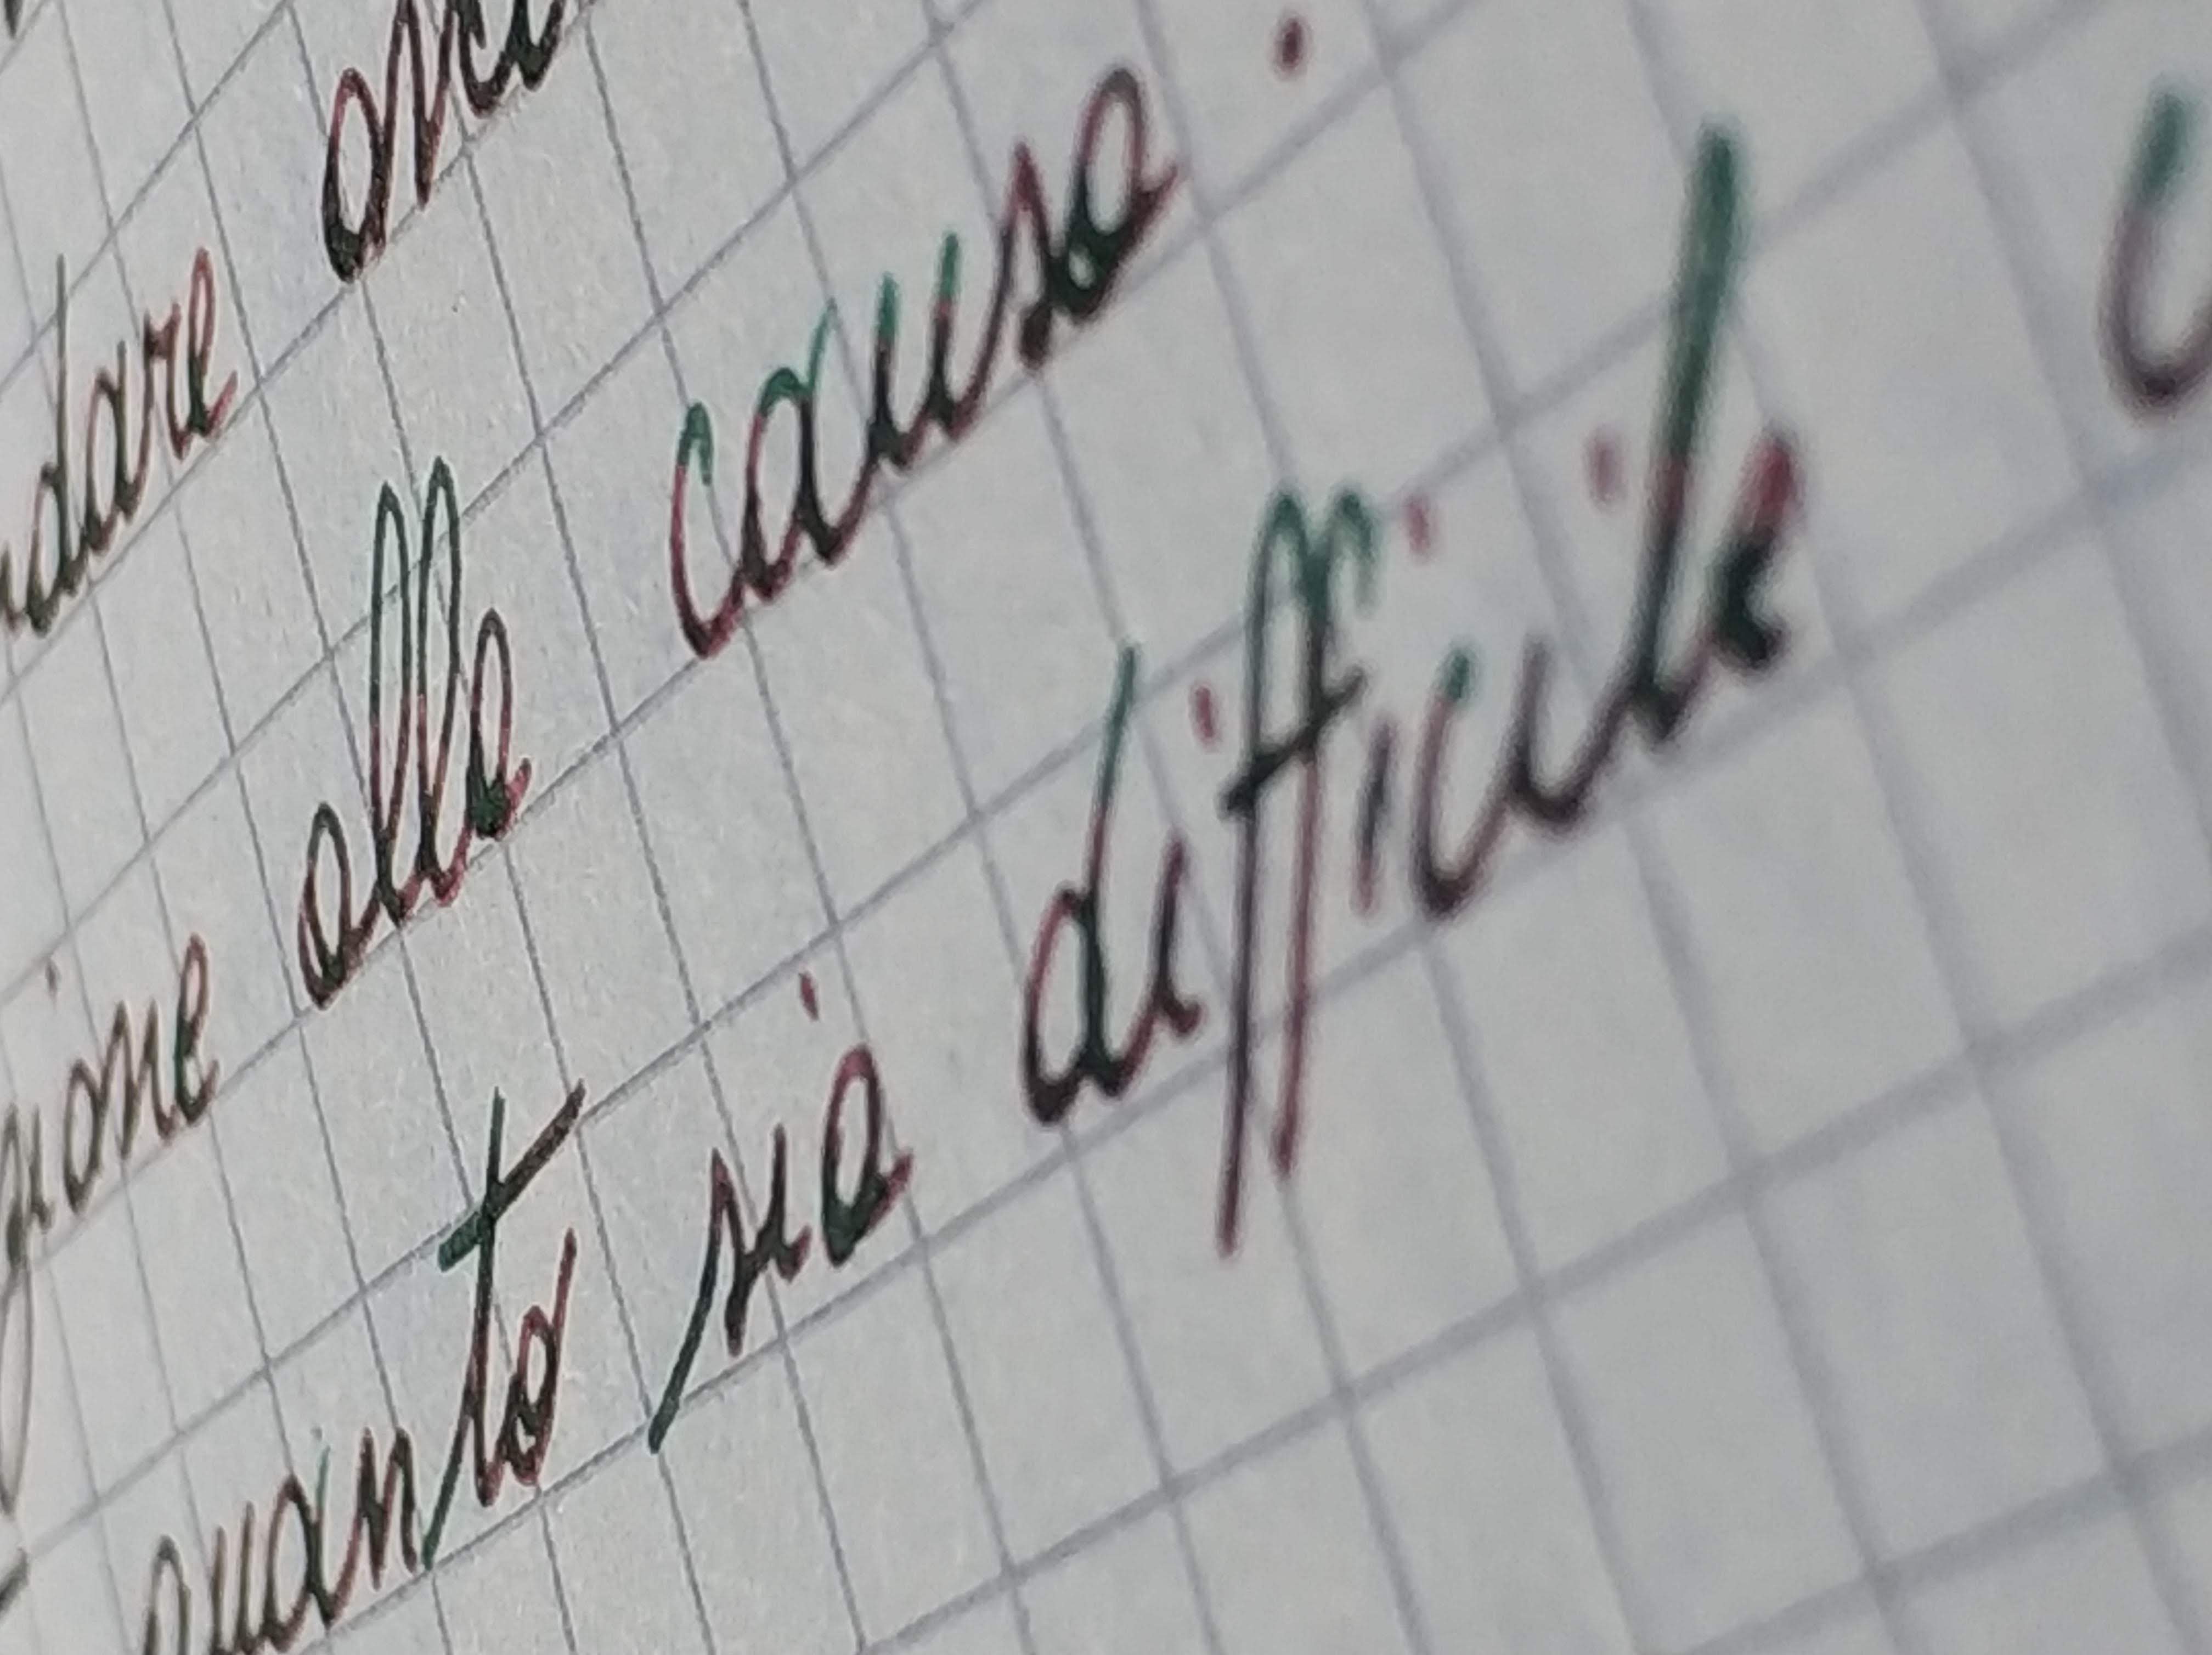 dare
gione alla causa.
quanto sia difficile